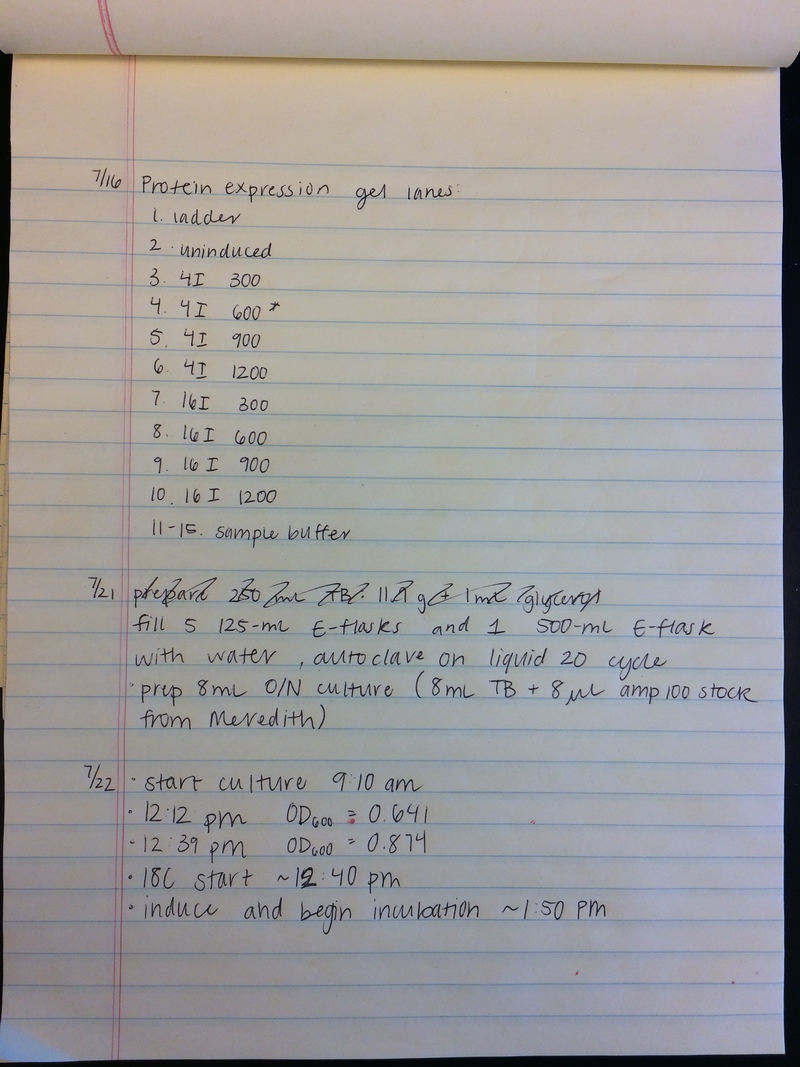 7/16 Protein expression gel lanes:
1. ladder
2. uninduced
3. 4I 300
4. 4I 600 *
5. 4I 900
6. 4I 1200
7. 16I 300
8. 16I 600
9. 16 I 900
10. 16 I 1200
11-15. sample buffer
7/21 250 mL TB: g + 1mL glycerol
fill 5 125-mL E-flasks and 1 500-mL E-flask
with water, autoclave on liquid 20 cycle
· prep 8mL O/N culture (8mL TB + 8µL amp100 stock
from Meredith)
7/22 · start culture 9:10 am
· 12:12 pm OD600 = 0.641
· 12:39 pm OD600 = 0.874
· 18C start ~12:40 pm
· induce and begin incubation ~1:50 pm